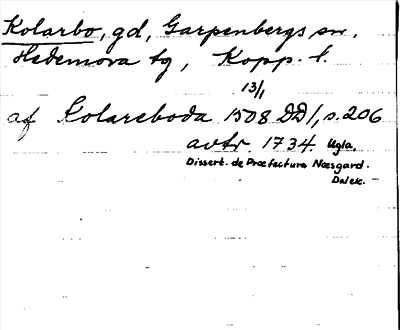 Kolarbo, gd, Garpenbergs sn,
Hedemora tg, Kopp. l.
13/1
af Kolareboda 1508 DD 1, s. 206
avtr. 1734. Ugla.
Dissert. de Præfectura Næsgard.
Dalek.